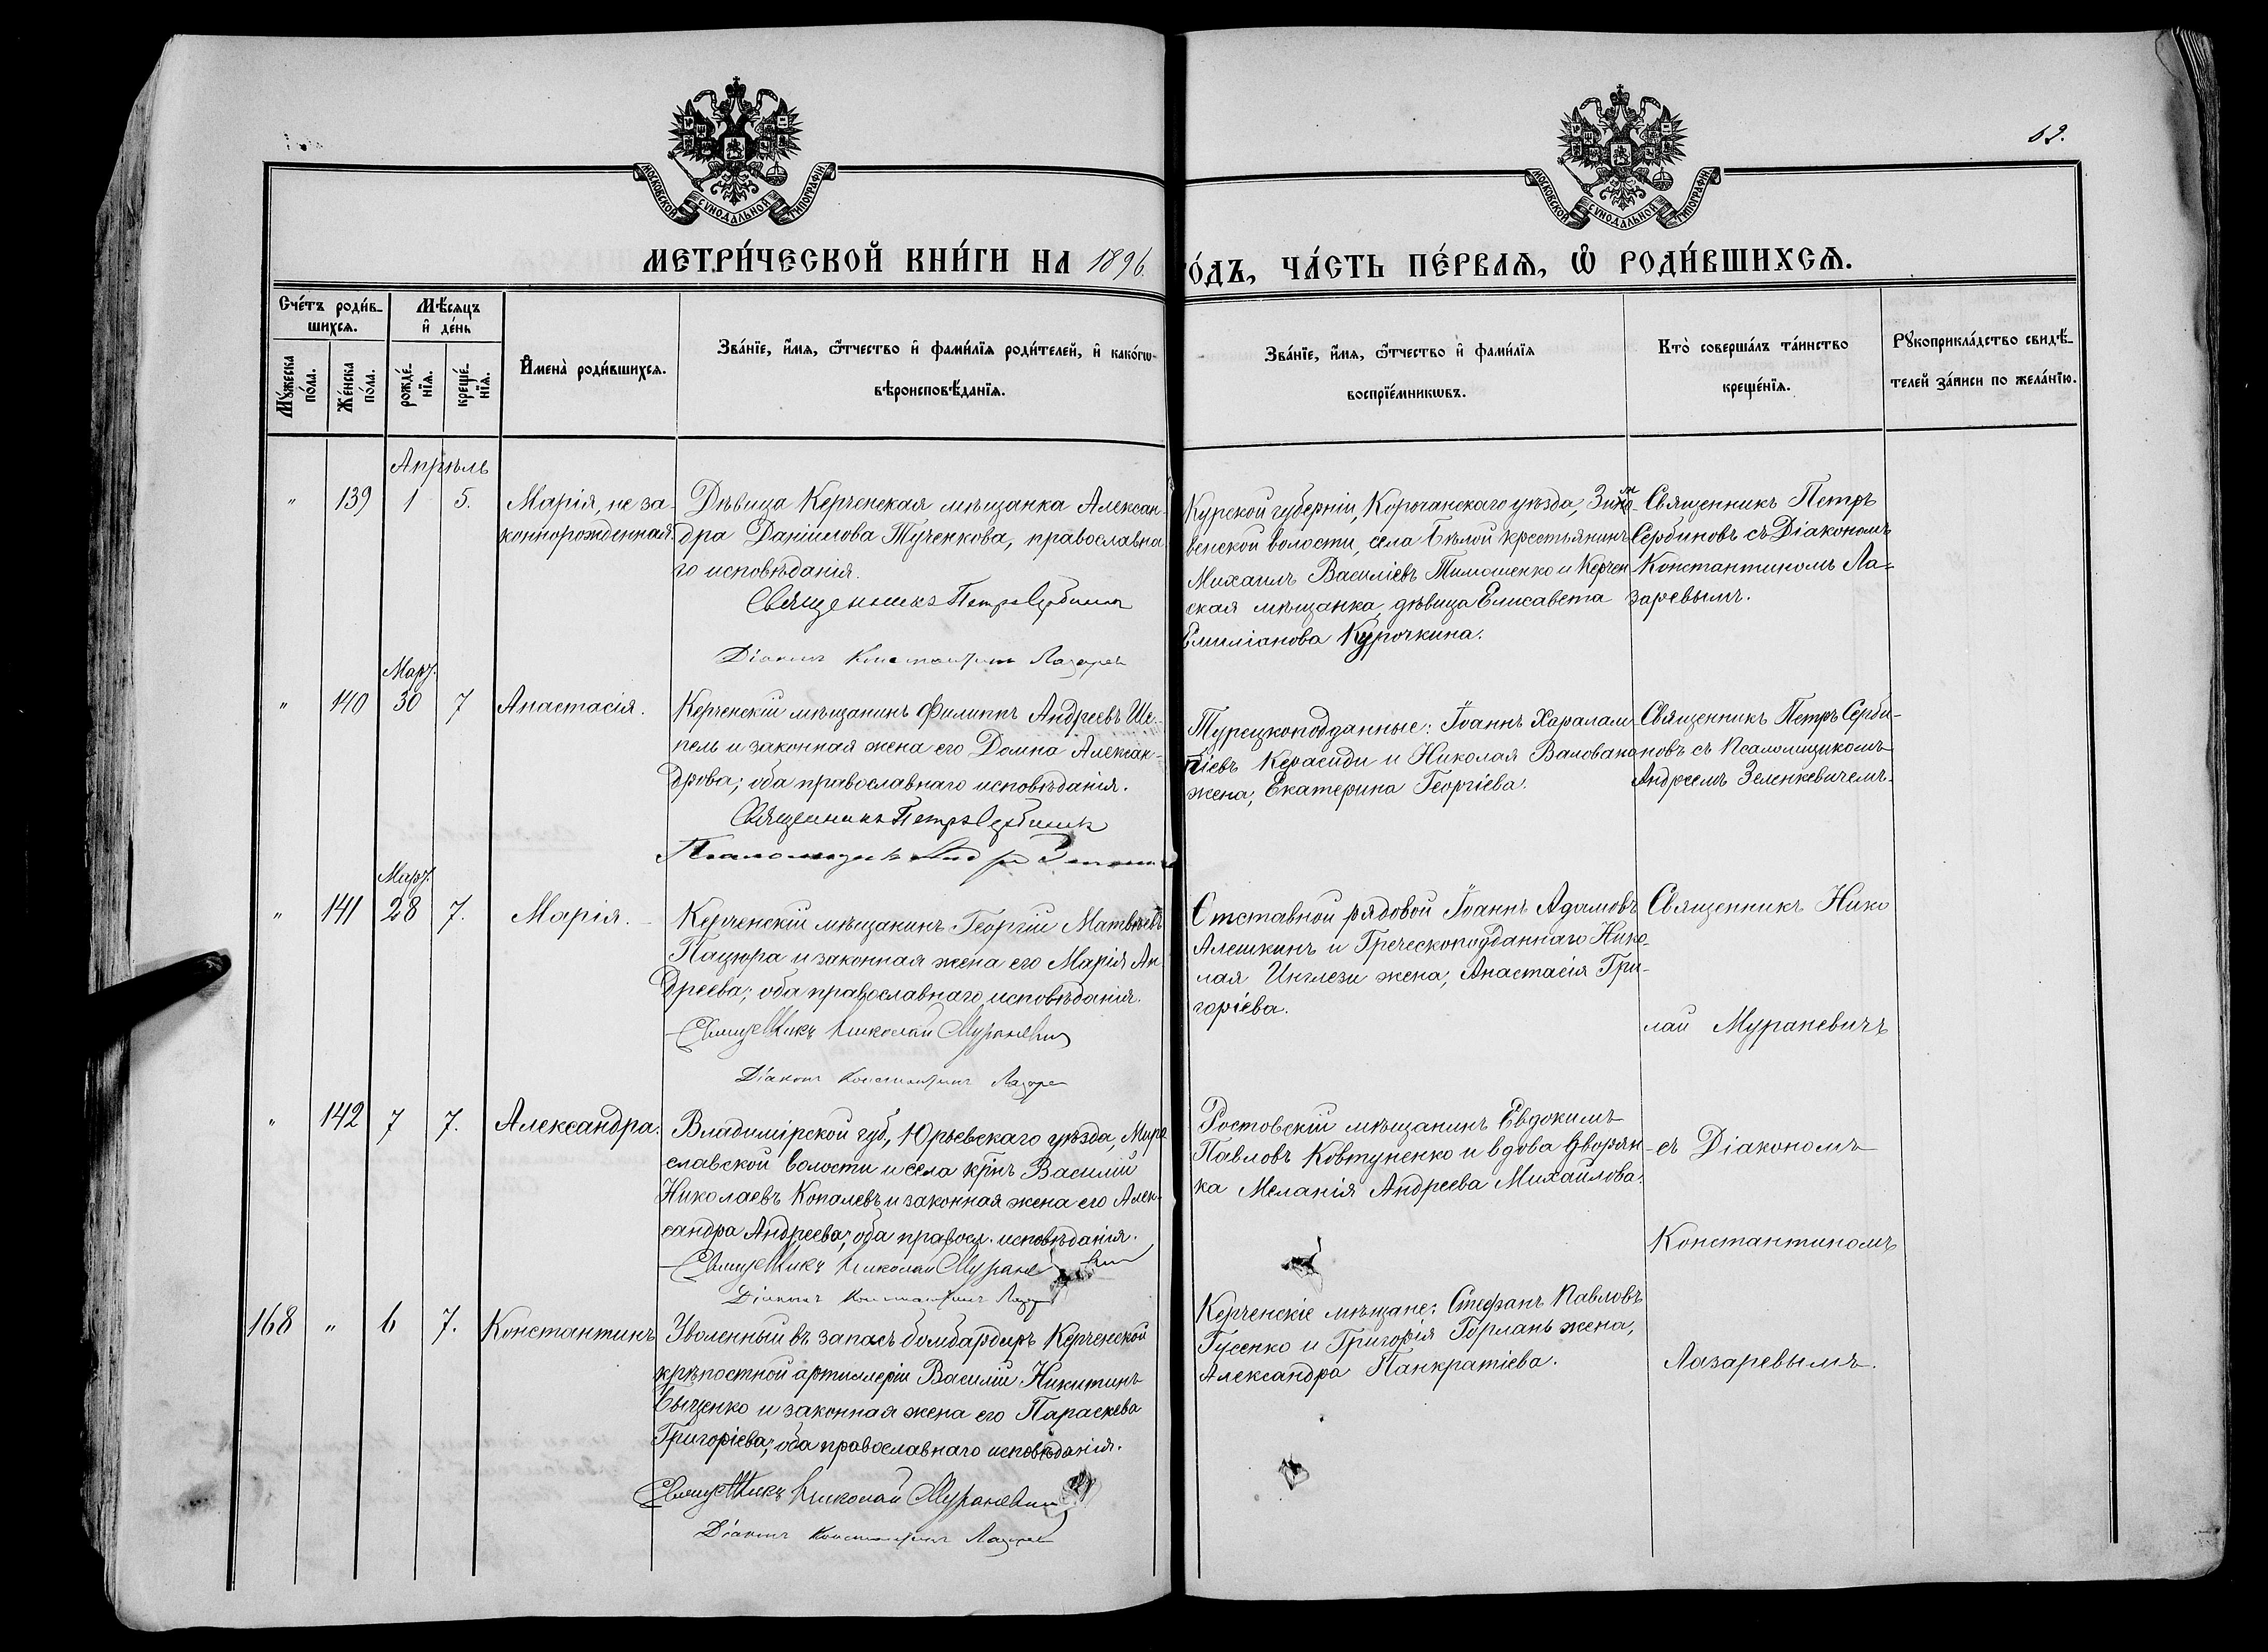 62.
МОСКОВСКОЙ СѴНОДАЛЬНОЙ ТИПОГРАФІИ
МОСКОВСКОЙ СѴНОДАЛЬНОЙ ТИПОГРАФІИ
МЕТРИ́ЧЕСКОЙ КНИ́ГИ НА 1896
О́ДЪ, ЧА́СТЬ ПЕ́РВАѦ, Ѡ҆ РОДИ́ВШИХСѦ.
Сче́тъ роди́в-
шихсѧ.
Мѣ́сѧцъ
и҆ де́нь
Мꙋ́жеска
по́ла.
Же́нска
по́ла.
рожде́-
нїѧ.
креще́-
нїѧ.
И҆мена̀ роди́вшихсѧ.
Зва́нїе, и҆́мѧ, ѻ҆́тчество и҆ фами́лїѧ роди́телей, и҆ како́гѡ
вѣроисповѣ́данїѧ.
Зва́нїе, и҆́мѧ, ѻ҆́тчество и҆ фами́лїѧ
воспрїе́мникѡвъ.
Кто̀ соверша́лъ та́инство
креще́нїѧ.
Рꙋкоприкла́дство свидѣ́-
телей за́писи по жела́нїю.
Апрѣль
" 139 1 5.
Марія, не за-
коннорожденная.
Дѣвица Керченская мѣщанка Алексан-
дра Даніилова Тученкова, православна
го исповѣданія.
Священникъ Петръ Сербиновъ
Діаконъ Константинъ Лазарев
Курской губерніи, Корочанскаго уѣзда,
венской волости, села Бѣлой крестьянинъ
Михаилъ Василіевъ Тимошенко и Керчен-
ская мѣщанка, дѣвица Елисавета
Емиліанова Курочкина.
Священникъ Петръ
Сербиновъ съ Діакономъ
Константиномъ Ла-
заревымъ.
Март.
" 140 30 7
Анастасія.
Керченскій мѣщанинъ Филиппъ Андреевъ Ше-
пель и законная жена его Домна Алексан-
дрова; оба православнаго исповѣданія.
Священникъ Петръ Сербиновъ
Псаломщикъ
Турецкоподданные: Іоаннъ Харалам
піевъ Керасиди и Николая Валовано
жена, Екатерина Георгіева.
Священникъ Петръ Серби-
новъ съ Псаломщикомъ
Андреемъ Зеленкевичемъ.
Март.
" 141 28 7.
Марія.
Керченскій мѣщанинъ Георгій Матвѣевъ
Пацюра и законная жена его Марія Ан
дреева; оба православнаго исповѣданія.
Священникъ Николай Мураневич
Діаконъ Константинъ Лазарев
Отставной рядовой Іоаннъ Адамовъ
Алешкинъ и Греческоподданнаго Нико-
лая Инглези жена, Анастасія Гри-
горіева.
Священникъ Нико
лай Мураневичъ
" 142 7 7.
Александра.
Владимірской губ., Юрьевскаго уѣзда, Миро
славской волости и села крнъ Василій
Николаевъ Копалевъ и законная жена его Алек-
сандра Андреева; оба правосл. исповѣданія.
Священникъ Николай Мураневич
Діаконъ Константинъ Лазарев
Ростовскій мѣщанинъ Евдокимъ
Павловъ Ковтуненко и вдова дворян-
ка Меланія Андреева Михайлова.
съ Діакономъ
Константиномъ
168 " 6 7.
Константинъ
Уволенный въ запасъ бомбардиръ Керченской
крѣпостной артиллеріи Василій Никитинъ
Сыценко и законная жена его Параскева
Григоріева; оба православнаго исповѣданія.
Священникъ Николай Мураневич
Діаконъ Константинъ Лазарев
Керченскіе мѣщане: Стефанъ Павловъ
Гусенко и Григорія Горланъ жена,
Александра Панкратіева.
Лазаревымъ.